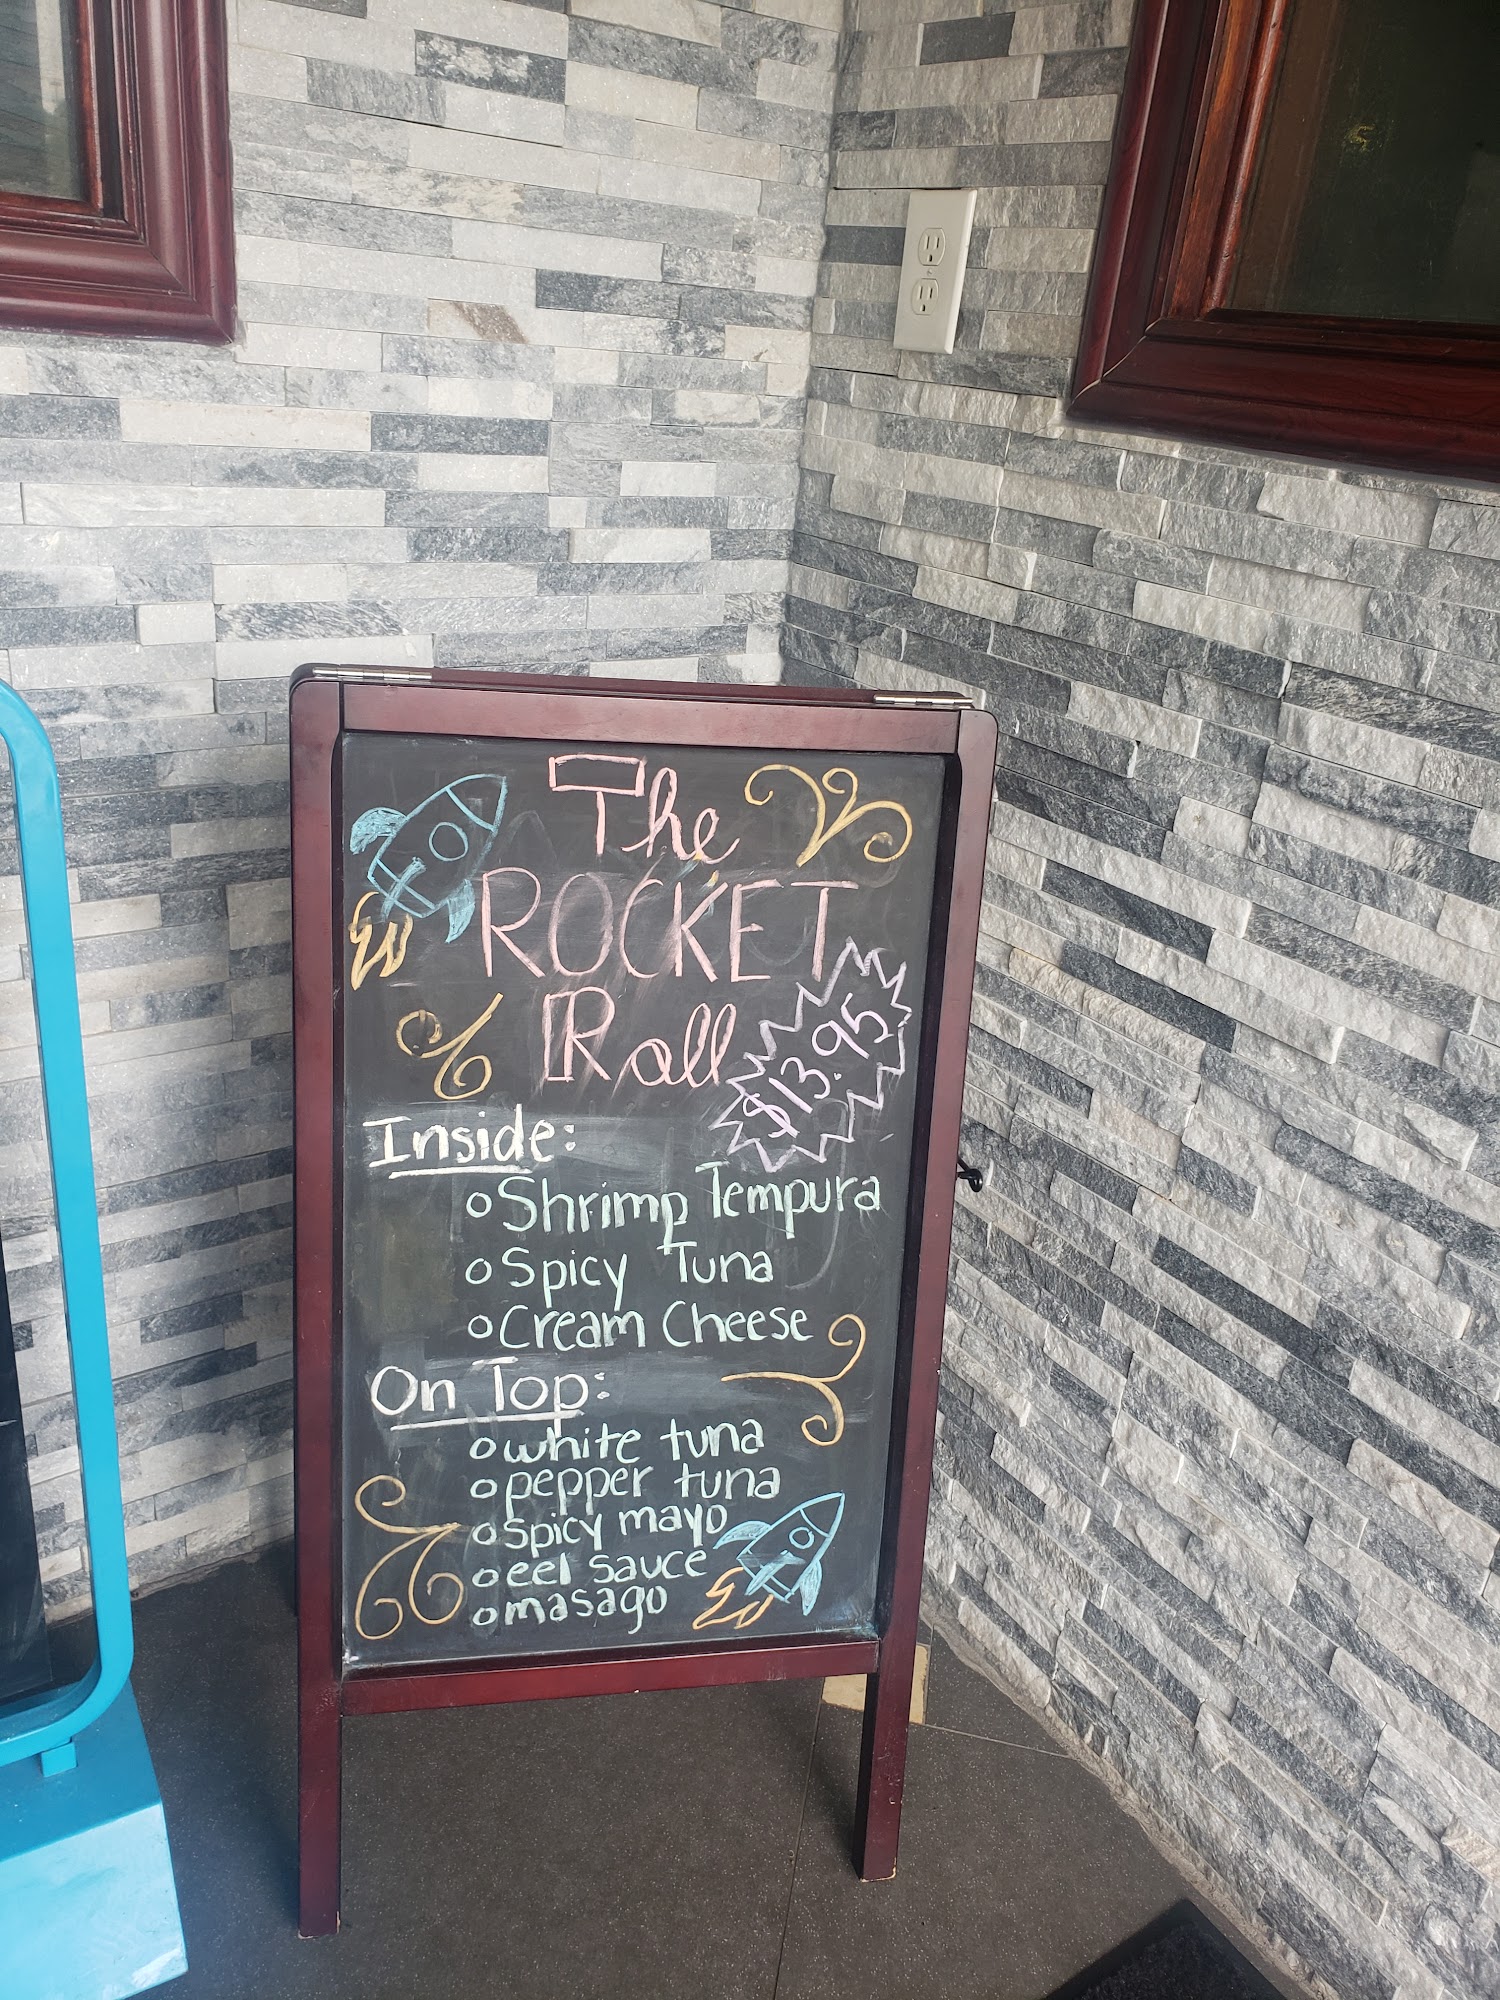 The
ROCKET
Roll
$13.95
Inside:
o Shrimp Tempura
o Spicy Tuna
o Cream Cheese
On Top:
o white tuna
o pepper tuna
o spicy mayo
o eel sauce
o masago